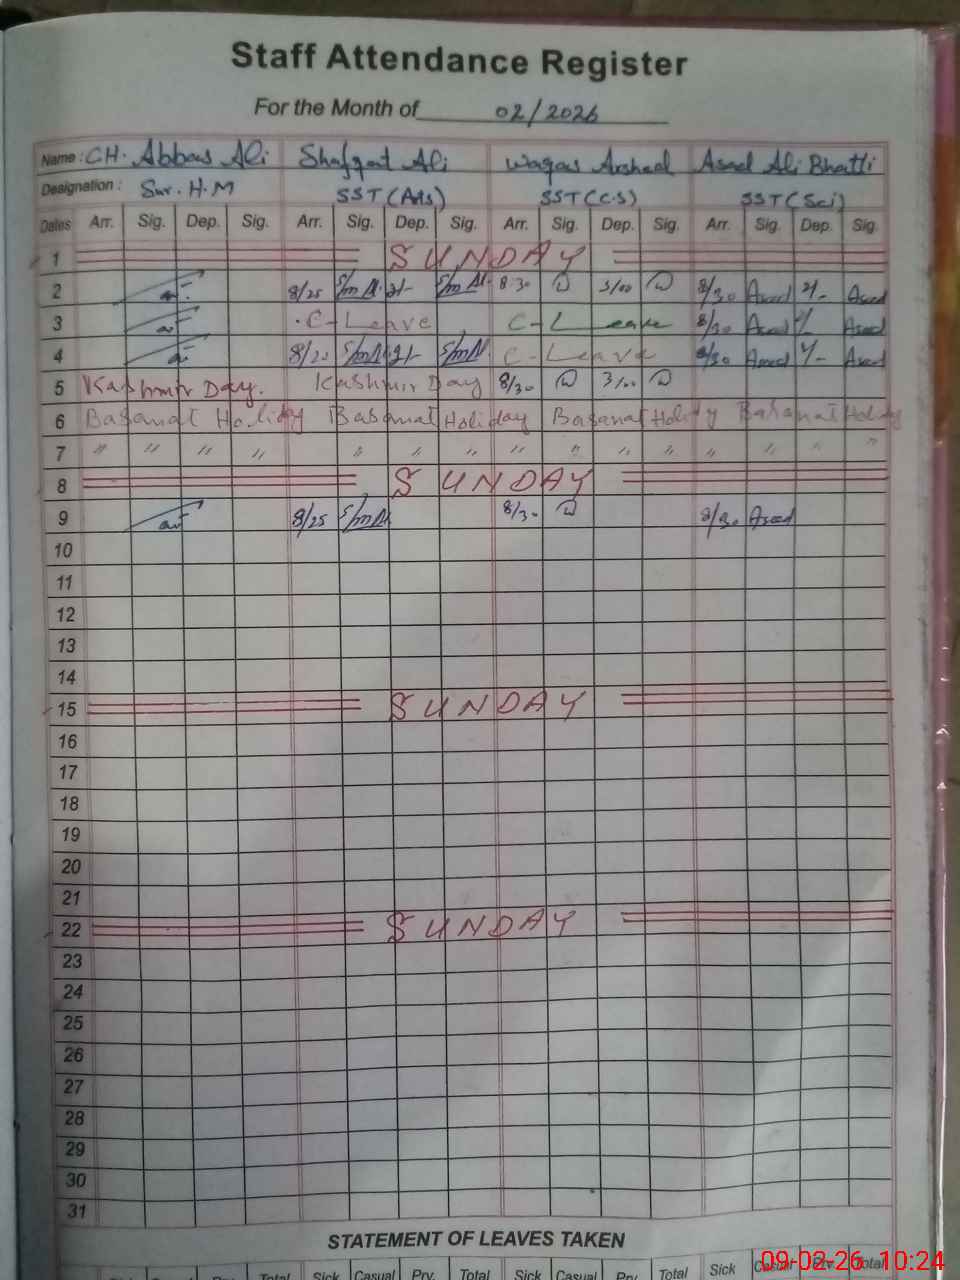 Staff Attendance Register
For the Month of 02/2026
Name: CH. Abbas Ali Shafqat Ali Waqas Arshad Asad Ali Bhatti
Designation: Snr. H.M SST (Arts) SST (C.S) SST (Sci)
Dates Arr. Sig. Dep. Sig. Arr. Sig. Dep. Sig. Arr. Sig. Dep. Sig. Arr. Sig. Dep. Sig.
1 SUNDAY
2 8/25 2/- 8:30 3/00 8/30 Asad 2/- Asad
3 C-Leave C-Leave 8/30 Asad Asad
4 8/25 2/- C-Leave 8/30 Asad Asad
5 Kashmir Day. Kashmir Day 8/30 3/00
6 Basanat Holiday Basanat Holiday Basanat Holidy Basanat Holiday
7 " " " " " " " " " " " " " " "
8 SUNDAY
9 8/25 8/30 8/30 Asad
10
11
12
13
14
15 SUNDAY
16
17
18
19
20
21
22 SUNDAY
23
24
25
26
27
28
29
30
31
STATEMENT OF LEAVES TAKEN
Total Sick Casual Prv. Total Sick Casual Prv. Total Sick Casual Prv. Total
09-02-26 10:24